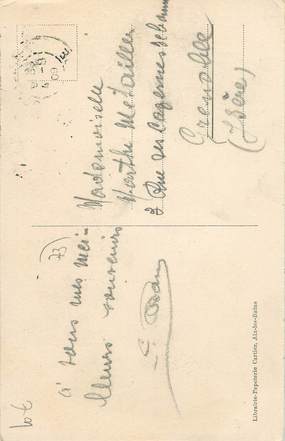 Mademoiselle
Marthe Métailler
3 Rue des Casernes
Grenoble
(Isère)
73
à tous mes mei-
lleurs souvenirs
Librairie-Papeterie Cartier, Aix-les-Bains